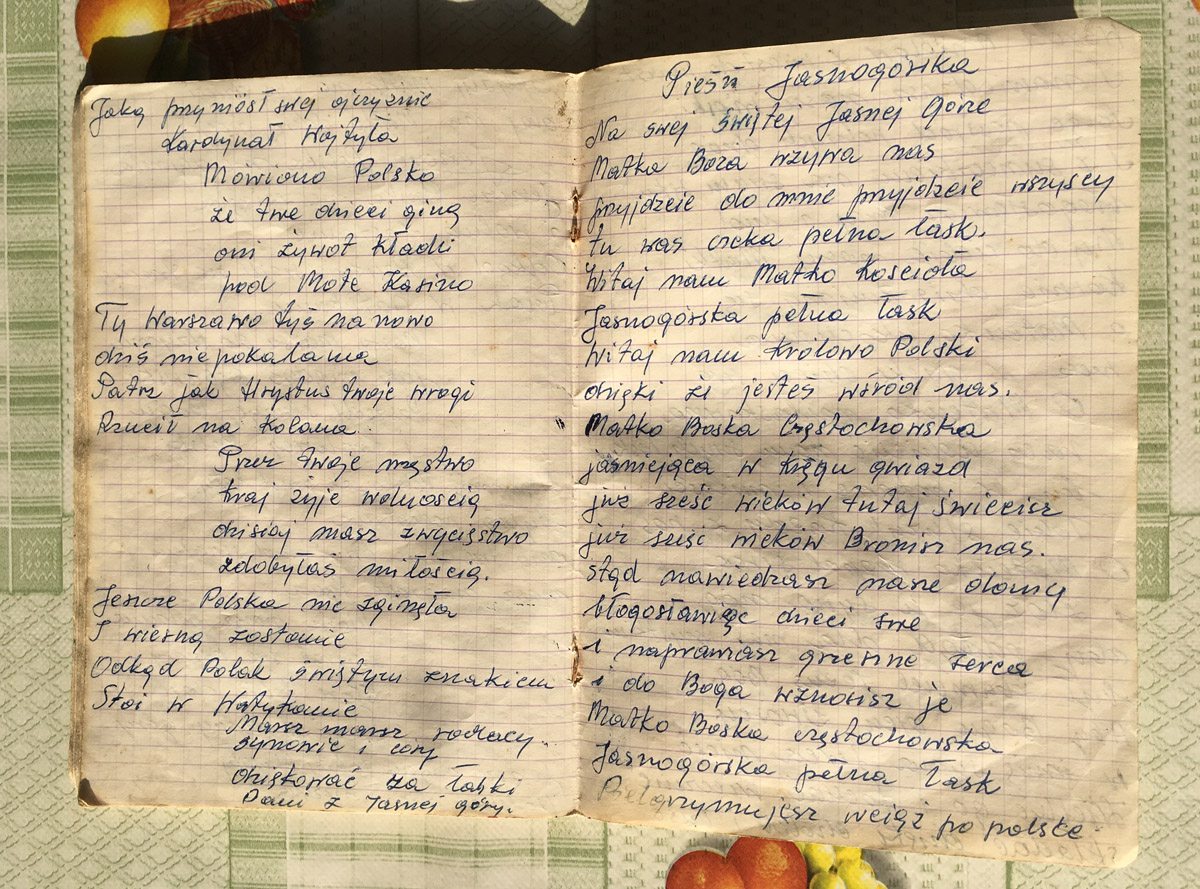 Jaką przyniósł swej ojczyźnie
Kardynał Wojtyła
Mówiono Polsko
że twe dzieci giną
oni żywot kładli
pod Mote Kasino
Ty Warszawo tyś na nowo
dziś niepokalana
Patrz jak Hrystus twoje wrogi
Rzucił na Kolana
Przez twoje męstwo
kraj żyje wolnością
dzisiaj masz zwycięstwo
zdobyłaś miłością.
Jeszcze Polska nie zginęła
I wierną zostanie
Odkąd Polak świętym znakiem
Stoi w Watykanie
Marsz marsz rodacy
synowie i cory
dziękować za łaski
Pani z Jasnej góry.
Pieśń Jasnogórska
Na swej Świętej Jasnej Górze
Matka Boża wzywa nas
przyjdzcie do mnie przyjdzcie wszyscy
tu was czeka pełna łask.
Witaj nam Matko Kościoła
Jasnogórska pełna łask
Witaj nam królowo Polski
dzięki że jesteś wśród nas.
Matko Boska Częstochowska
jaśniejąca w kręgu gwiazd
już sześć wieków tutaj świecisz
już sześć wieków Bronisz nas.
stąd nawiedzasz nasze domy
błogosławiąc dzieci swe
i naprawiasz grzeszne serca
i do Boga wznosisz je
Matko Boska częstochowska
Jasnogórska pełna łask
Pielgrzymujesz wciąż po polsce